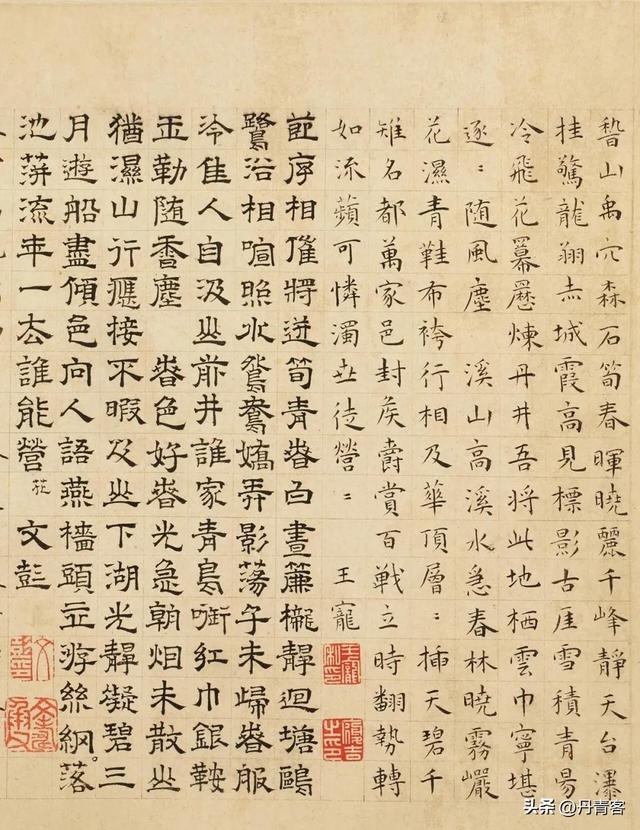 稽山禹穴森石筍春暉曉麗千峰靜天台瀑
桂驚龍翔赤城霞高見標影古崖雪積青昜
冷飛花羃歷煉丹井吾將此地栖雲巾寧堪
逐〻随風塵 溪山高溪水急春林曉霧巖
花濕青鞋布袴行相及華頂層〻插天碧千
雉名都萬家邑封矦爵賞百戰立時翻勢轉
如流蘋可憐濁世徒營〻 王寵
節序相催將迸筍青春白晝簾櫳靜迴塘鷗
鷺浴相喧照水鴛鴦嬌弄影蕩子未歸春服
冷佳人自汲㞢前井誰家青鳥銜紅巾銀鞍
玉勒随香塵 春色好春光急朝烟未散㞢
猶濕山行應接不暇及㞢下湖光靜凝碧三
月遊船盡傾色向人語燕檣頭立游絲網落
池萍流年一去誰能營 花 文彭
头条 @丹青客